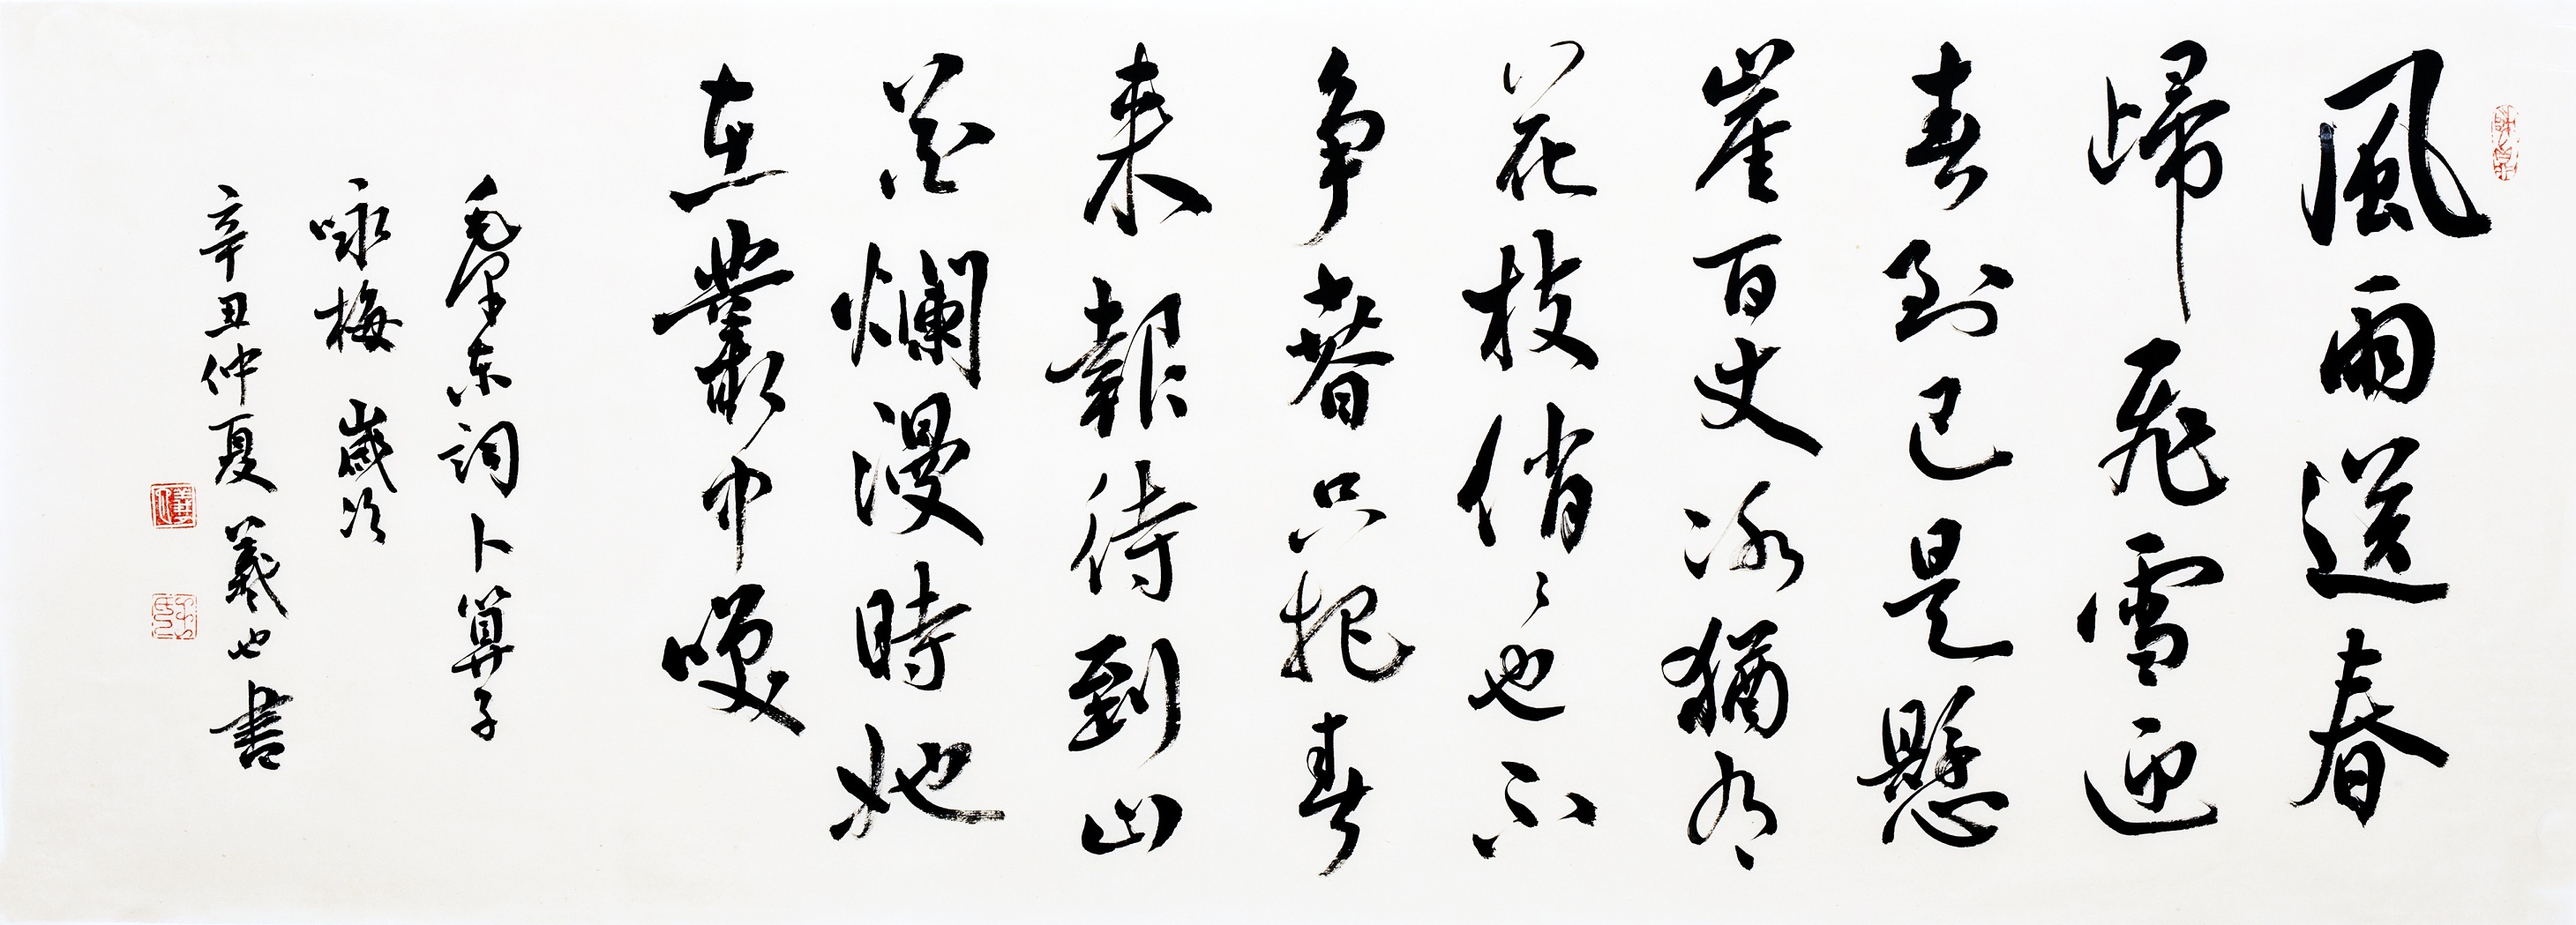 風雨送春
歸飛雪迎
春到已是懸
崖百丈冰猶有
花枝俏〻也不
争春只把春
来報待到山
花爛漫時她
在叢中咲
毛澤东詞卜算子
咏梅 歲次
辛丑仲夏 羲也書